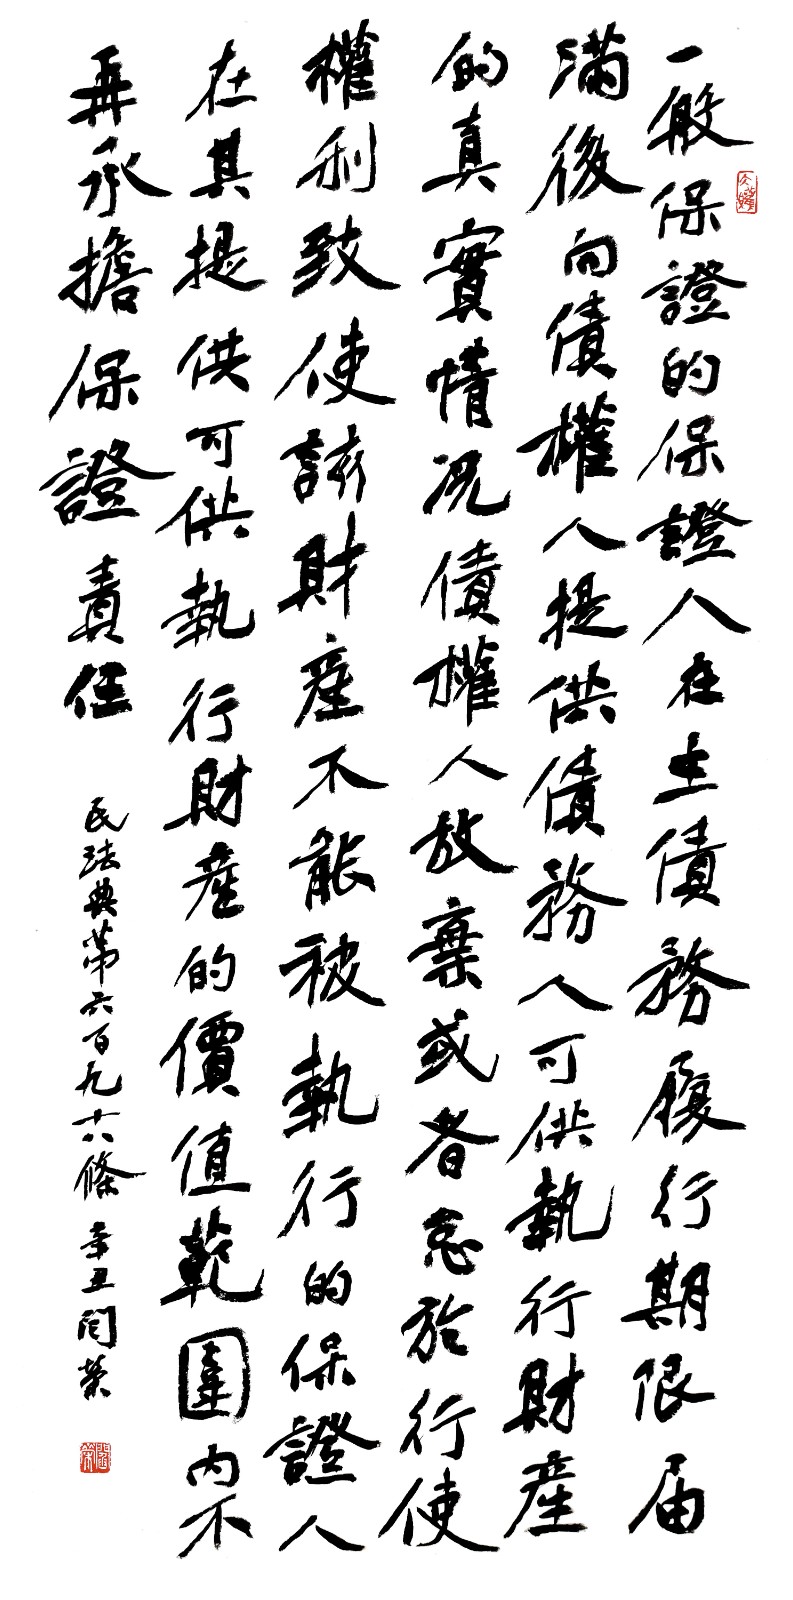 一般保證的保證人在主債務履行期限届
滿後向債權人提供債務人可供執行財產
的真實情况債權人放棄或者怠於行使
權利致使該財產不能被執行的保證人
在其提供可供執行財產的價值範圍内不
再承擔保證責任
民法典第六百九十八條 辛丑閆榮